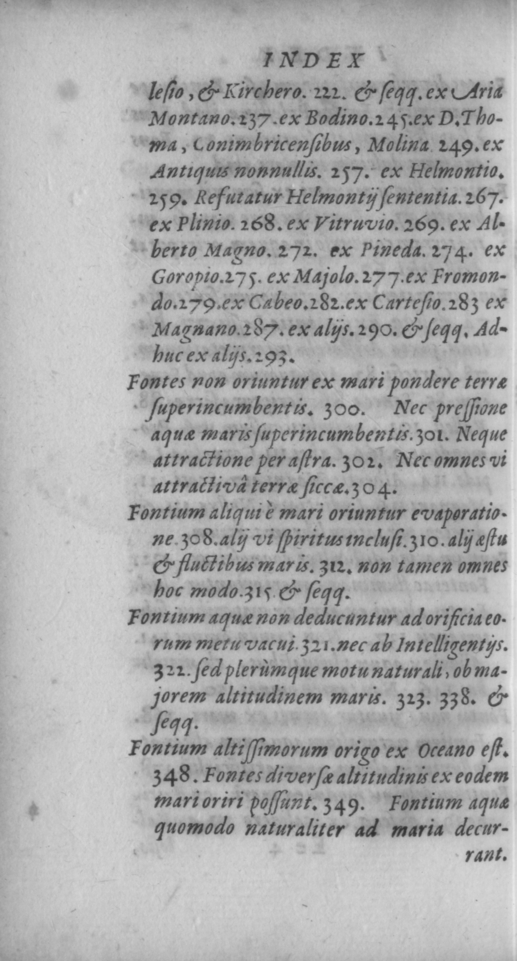 INDEX
lesio, & Kirchero. 222. & seqq. ex Aria
Montano. 237. ex Bodino. 245. ex D. Tho-
ma, Conimbricensibus, Molina 249. ex
Antiquis nonnullis. 257. ex Helmontio.
259. Refutatur Helmontij sententia. 267.
ex Plinio. 268. ex Vitruvio. 269. ex Al-
berto Magno. 272. ex Pineda. 274. ex
Goropio. 275. ex Majolo. 277. ex Fromon-
do. 279. ex Cabeo. 282. ex Cartesio. 283 ex
Magnano. 287. ex alijs. 290. & seqq. Ad-
huc ex alijs. 293.
Fontes non oriuntur ex mari pondere terræ
superincumbentis. 300. Nec pressione
aquæ maris superincumbentis. 301. Neque
attractione per astra. 302. Nec omnes vi
attractivâ terræ siccæ. 304.
Fontium aliqui è mari oriuntur evaporatio-
ne. 308. alij vi spiritus inclusi. 310. alij æstu
& fluctibus maris. 312. non tamen omnes
hoc modo. 315 & seqq.
Fontium aquæ non deducuntur ad orificia eo-
rum metu vacui. 321. nec ab Intelligentijs.
322. sed plerùmque motu naturali, ob ma-
jorem altitudinem maris. 323. 338. &
seqq.
Fontium altissimorum origo ex Oceano est.
348. Fontes diversæ altitudinis ex eodem
mari oriri possunt. 349. Fontium aquæ
quomodo naturaliter ad maria decur-
rant.